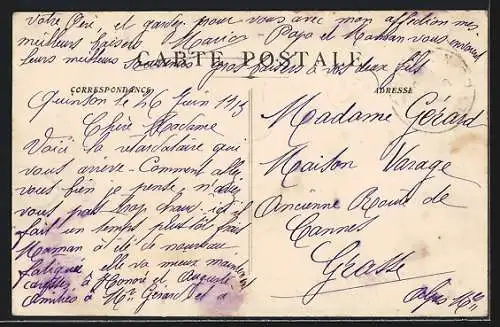 votre Géré, et gardez pour vous avec mon affection mes
meilleurs baisers Marie - Papa et Maman vous envoient
leurs meilleurs souvenirs gros baisers à vos deux fils
CARTE POSTALE
CORRESPONDANCE
Quinson le 26 Juin 19
Chère Madame
Voici la retardataire qui
vous arrive - Comment allez
vous bien je pense, n'avez
vous pas trop chaud ici il
fait un temps plutôt frais
Maman a été de nouveau
fatiguée, elle va mieux maintenant
caresses à Honoré et Auguste
Amitiés à Mr Gérard et à
ADRESSE
Madame Gérard
Maison Varage
Ancienne Route de
Cannes
Grasse
Alpes Mmes